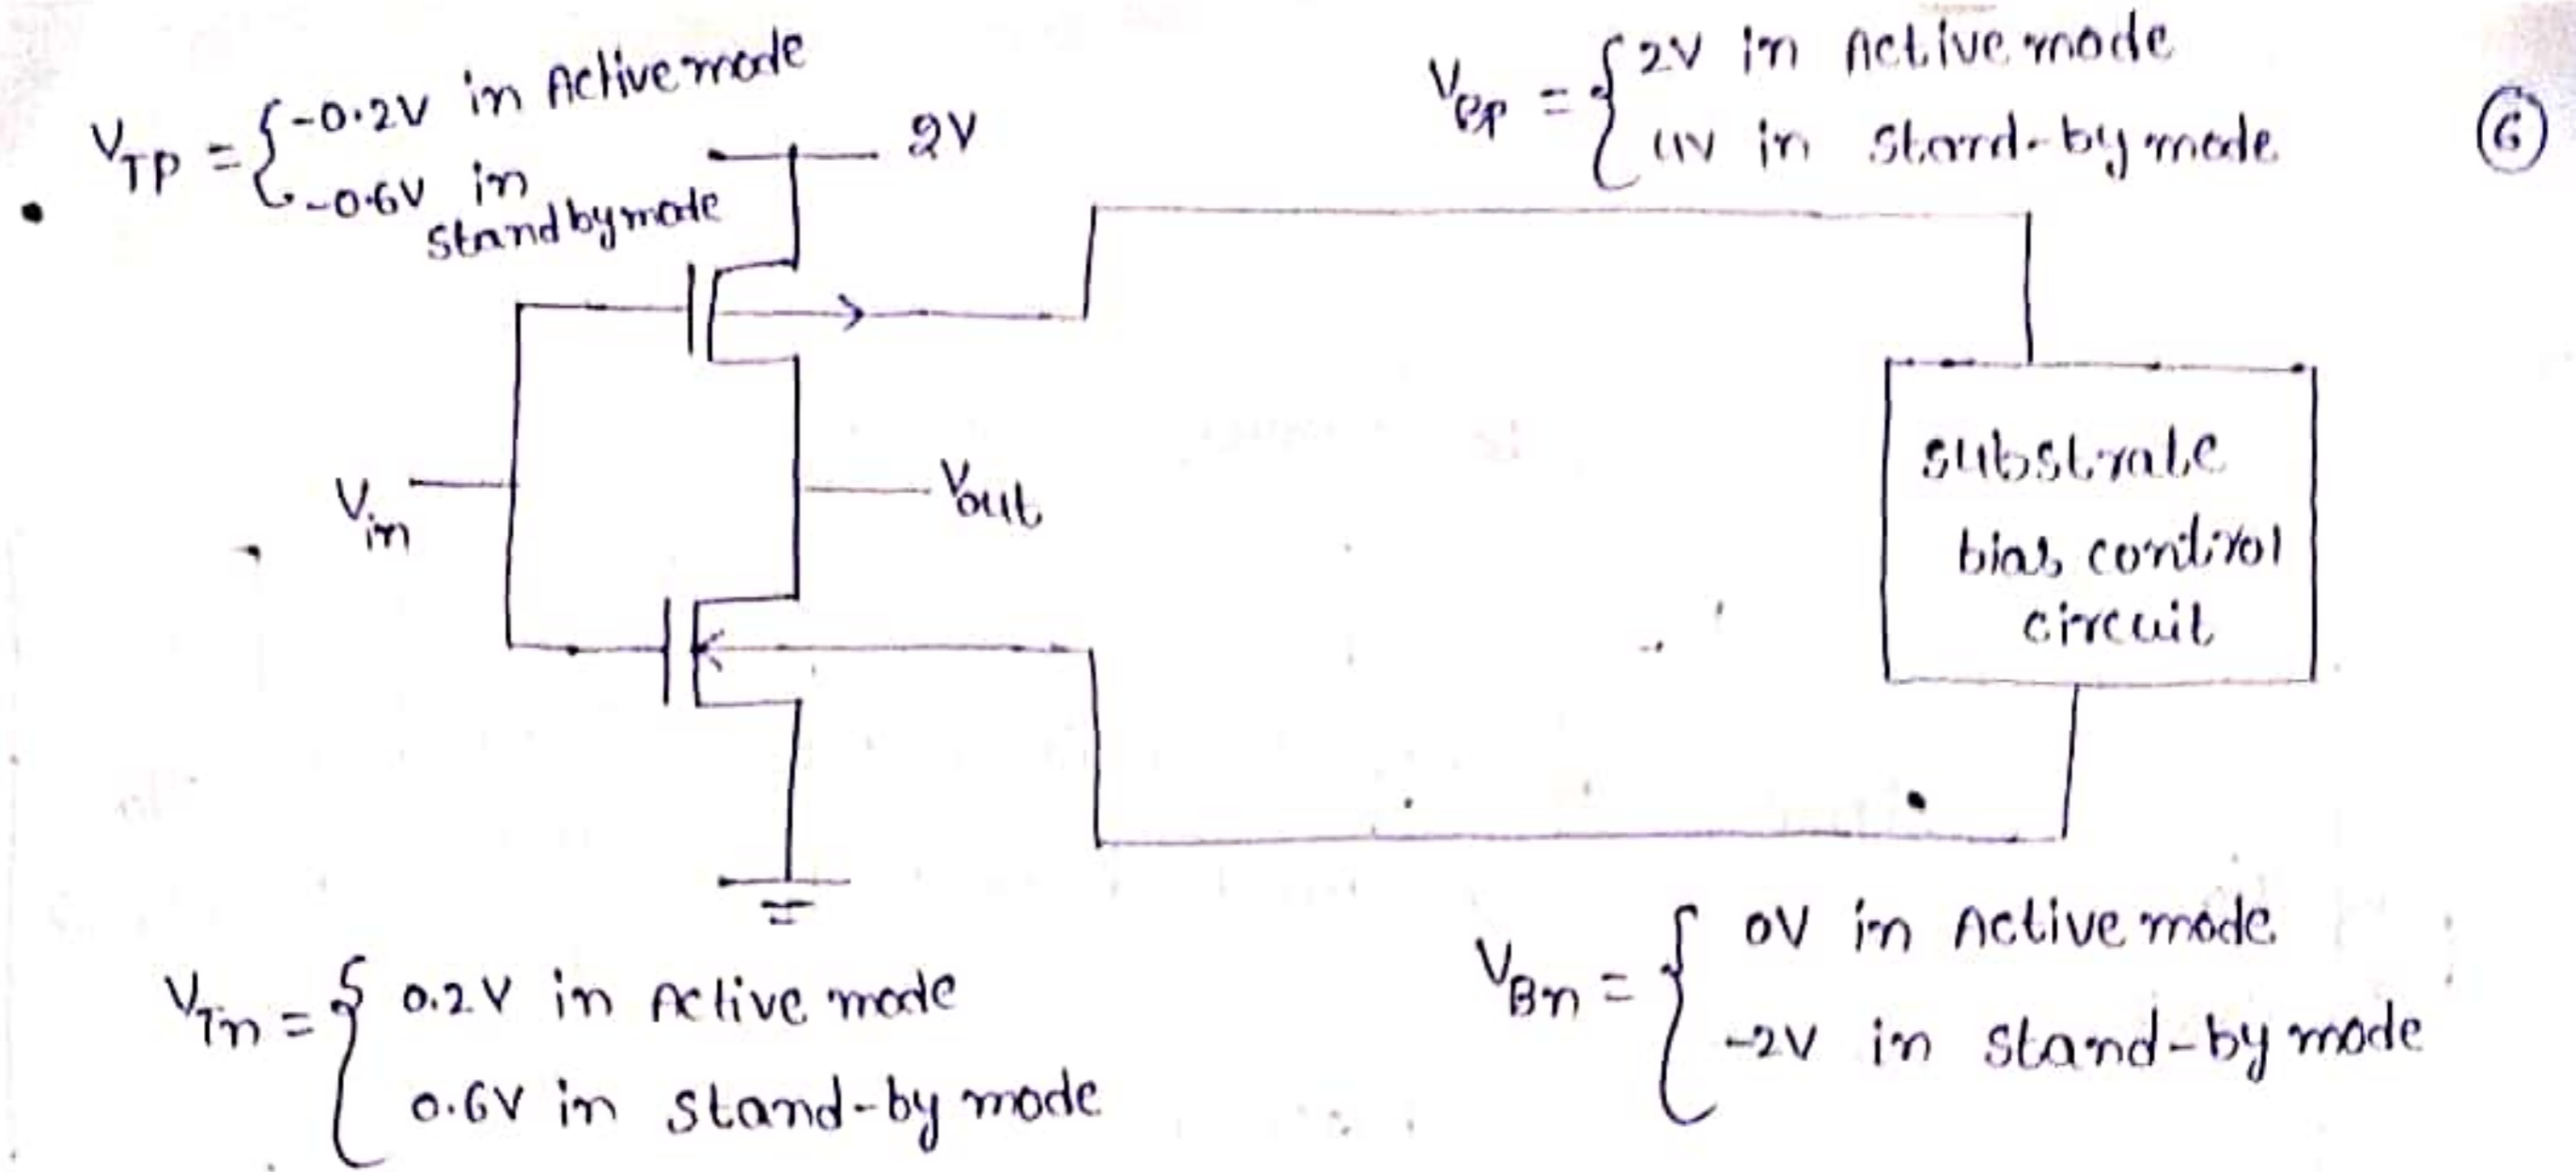 V_TP = { -0.2V in Active mode
-0.6V in
Stand by mode
2V
V_BP = { 2V in Active mode
4V in Stand-by mode
6
V_in
V_out
substrate
bias control
circuit
V_Tn = { 0.2V in Active mode
0.6V in stand-by mode
V_Bn = { 0V in Active mode
-2V in stand-by mode